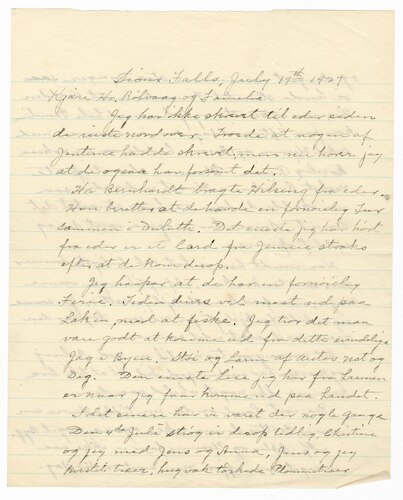 Sioux Falls, July 19th 1927
Kjære Hr. Rölvaag og Familie
Jeg har ikke skrevet til eder siden
de reiste nordover. Troede at nogen af
Jentene hadde skrevet, men nu hörer jeg
at de ogsaa han forsømt det.
Hr Bernhardt bragte Helsing fra eder.
Han brutter at de havde en fornöielig Tur
sammen i Duluth. Det eneste jeg har hört
fra eder er et Card fra Jennie straks
efter at de kom derop.
Jeg haaper at de har en fornöielig
Ferie. Tiden dives vel mest ud paa
Laken, med at fiske. Jeg tror det maa
være godt at komme ud fra dette
Jag i Byen, Støi og Larm af Autos nat og
Dag. Den eneste Lise jeg har fra Larmen
er naar jeg faar komme ud paa Landet.
I det senere har vi været der nogle Gange
Den 4de Juli strög vi derop tidlig, Christine
og jeg med Jens og Anna, Jens og jeg
kvistet træer, hug vak törkede Plommetræer